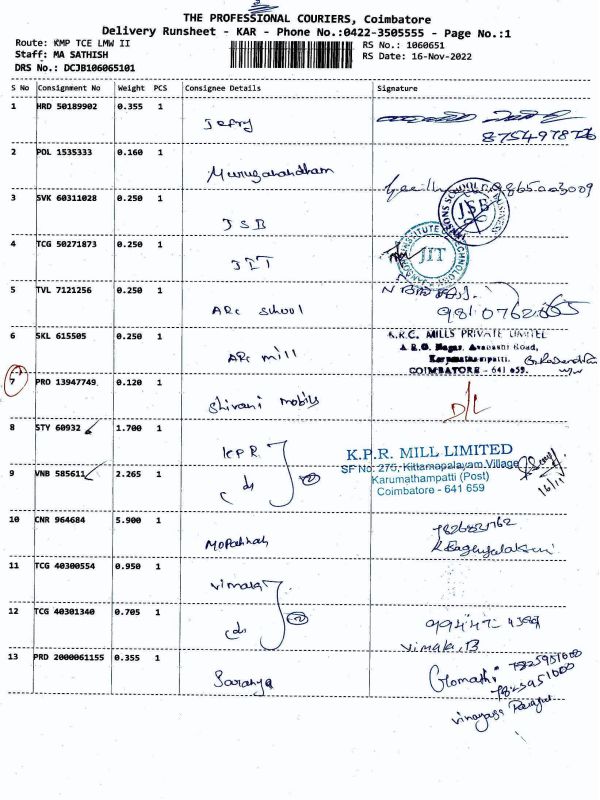 THE PROFESSIONAL COURIERS, Coimbatore
Delivery Runsheet - KAR - Phone No.:0422-3505555 - Page No.:1
Route: KMP TCE LMW II
Staff: MA SATHISH
DRS No.: DCJB106065101
RS No.: 1060651
RS Date: 16-Nov-2022
S No Consignment No Weight PCS Consignee Details Signature
1 HRD 50189902 0.355 1 Jefry
2 POL 1535333 0.160 1 Muruganandham
3 SVK 60311028 0.250 1 JSB
JSB
4 TCG 50271873 0.250 1 JIT
JIT
5 TVL 7121256 0.250 1 ARC school
6 SKL 615505 0.250 1 ARC mill
K.K.C. MILLS PRIVATE LIMITED
A.R.G. Nagar, Avanashi Road,
Karumathampatti.
COIMBATORE - 641 659.
7 PRO 13947749 0.120 1 Shivani mobils D/L
8 STY 60932 1.700 1 KPR
K.P.R. MILL LIMITED
SF No: 275, Kittampalayam Village
Karumathampatti (Post)
Coimbatore - 641 659
16/11
9 VNB 585611 2.265 1 do 2
10 CNR 964684 5.900 1
11 TCG 40300554 0.950 1 Vimala
12 TCG 40301340 0.705 1 do 2
Vimala.B
13 PRD 2000061155 0.355 1 Saranya Gomathi